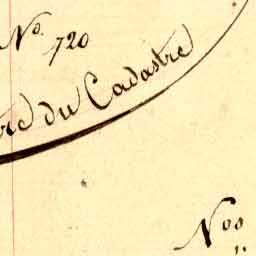 No. 720
tre du Cadastre
Nos